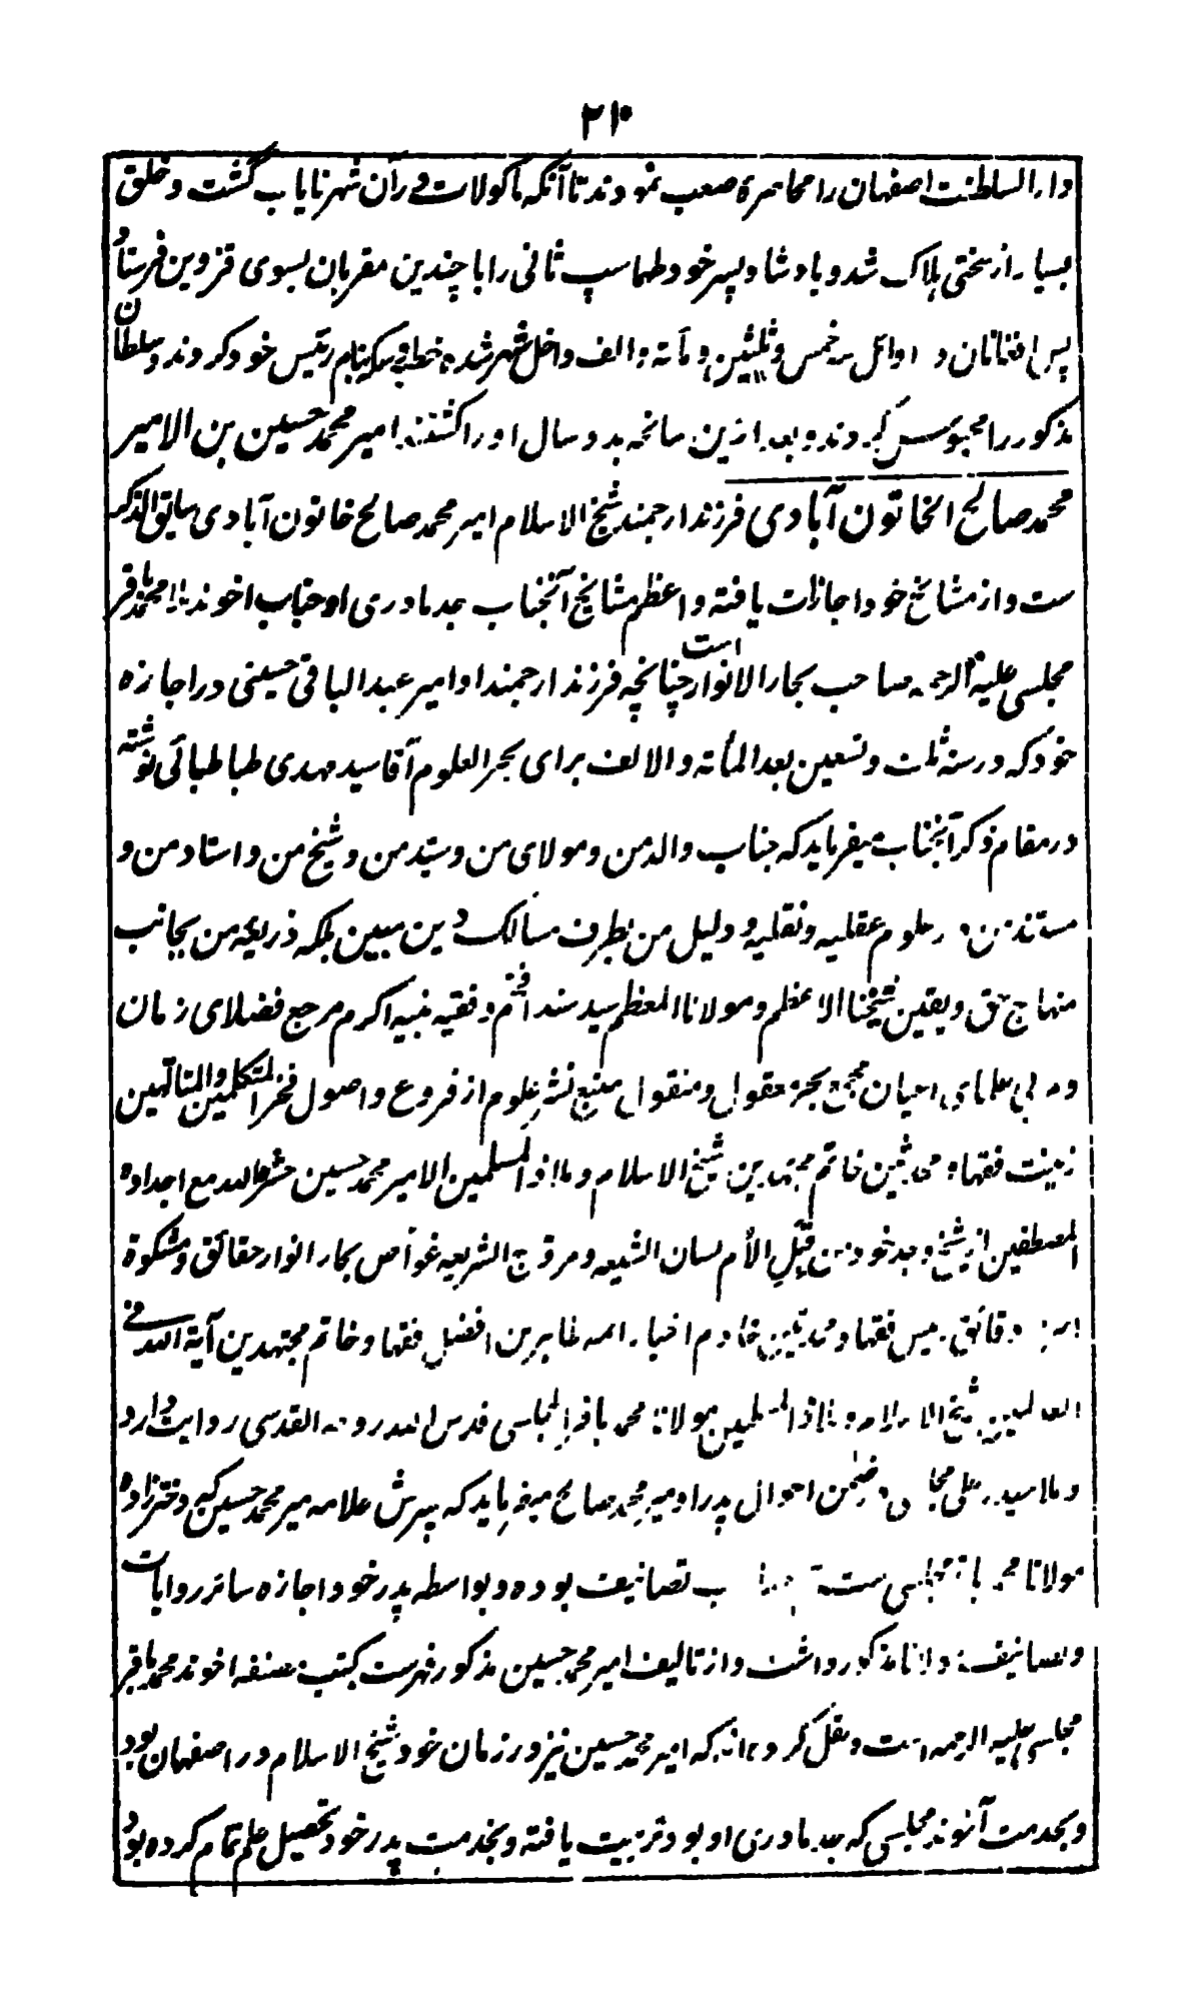 ۲۱۰
دارالسلطنت اصفهان را محاصرهٔ صعب نمودند تا آنکه ماکولات در آن شهر نایاب گشت و خلق
بسیار از سختی هلاک شد و بادشاه پسر خود طهماسپ ثانی را با چندین مقربان بسوی قزوین فرستاد
پس افغانان در اوائل خمس و ثلثین و مأته و الف داخل شهر شده خطبه و سکه بنام رئیس خود کردند و سلطان
مذکور را محبوس کردند و بعد ازین سانحه بدو سال او را کشتند امیر محمد حسین بن الامیر
محمد صالح الخاتون آبادی فرزند ارجمند شیخ الاسلام امیر محمد صالح خاتون آبادی سابق الذکر
ست و از مشائخ خود اجازات یافته و اعظم مشایخ آنجناب جد مادری او جناب اخوند ملا محمد باقر
مجلسی علیه الرحمه صاحب بحار الانوار است چنانچه فرزند ارجمند او امیر عبد الباقی حسینی در اجازه
خود که در سنه ثلث و تسعین بعد المأته و الالف برای بحر العلوم آقا سید مهدی طباطبائی نوشته
در مقام ذکر آنجناب میفرماید که جناب والد من و مولای من و سید من و شیخ من و استاد من و
مستند من در علوم عقلیه و نقلیه و دلیل من بطرف مسالک دین مبین بلکه ذریعه من بجانب
منهاج حق و یقین شیخنا الاعظم و مولانا المعظم سید سند افخم و فقیه نبیه اکرم مرجع فضلای زمان
و مربی علمای اعیان مجمع بحر معقول و منقول منبع نشر علوم از فروع و اصول فخر المتکلمین و المتألهین
زینت فقها و محدثین خاتم مجتهدین شیخ الاسلام و ملاذ المسلمین الامیر محمد حسین حشره الله مع اجداده
المصطفین از شیخ و جد خود من قبل الأم لسان الشیعه و مروج الشریعه غواص بحار انوار حقائق و مشکوة
دقائق رئیس فقها و محدثین خادم اخبار ائمه طاهرین افضل فقها و خاتم مجتهدین آیة الله فی
العالمین شیخ الاسلام و ملاذ المسلمین مولانا محمد باقر المجلسی قدس الله روحه القدسی روایت دارد
و ملا سید علی در ضمن احوال پدر او میر محمد صالح میفرماید که پسرش علامه میر محمد حسین که دختر زاده
مولانا محمد باقر مجلسی ست صاحب تصانیف بوده و بواسطه پدر خود اجازه سائر روایات
و تصانیف مولانا مذکور داشت و از تالیف امیر محمد حسین مذکور فهرست کتب مصنفه اخوند محمد باقر
مجلسی علیه الرحمه است و نقل کرده اند که امیر محمد حسین نیز در زمان خود شیخ الاسلام در اصفهان بود
و بخدمت آخوند مجلسی که جد مادری او بود تربیت یافته و بخدمت پدر خود تحصیل علم تمام کرده بود